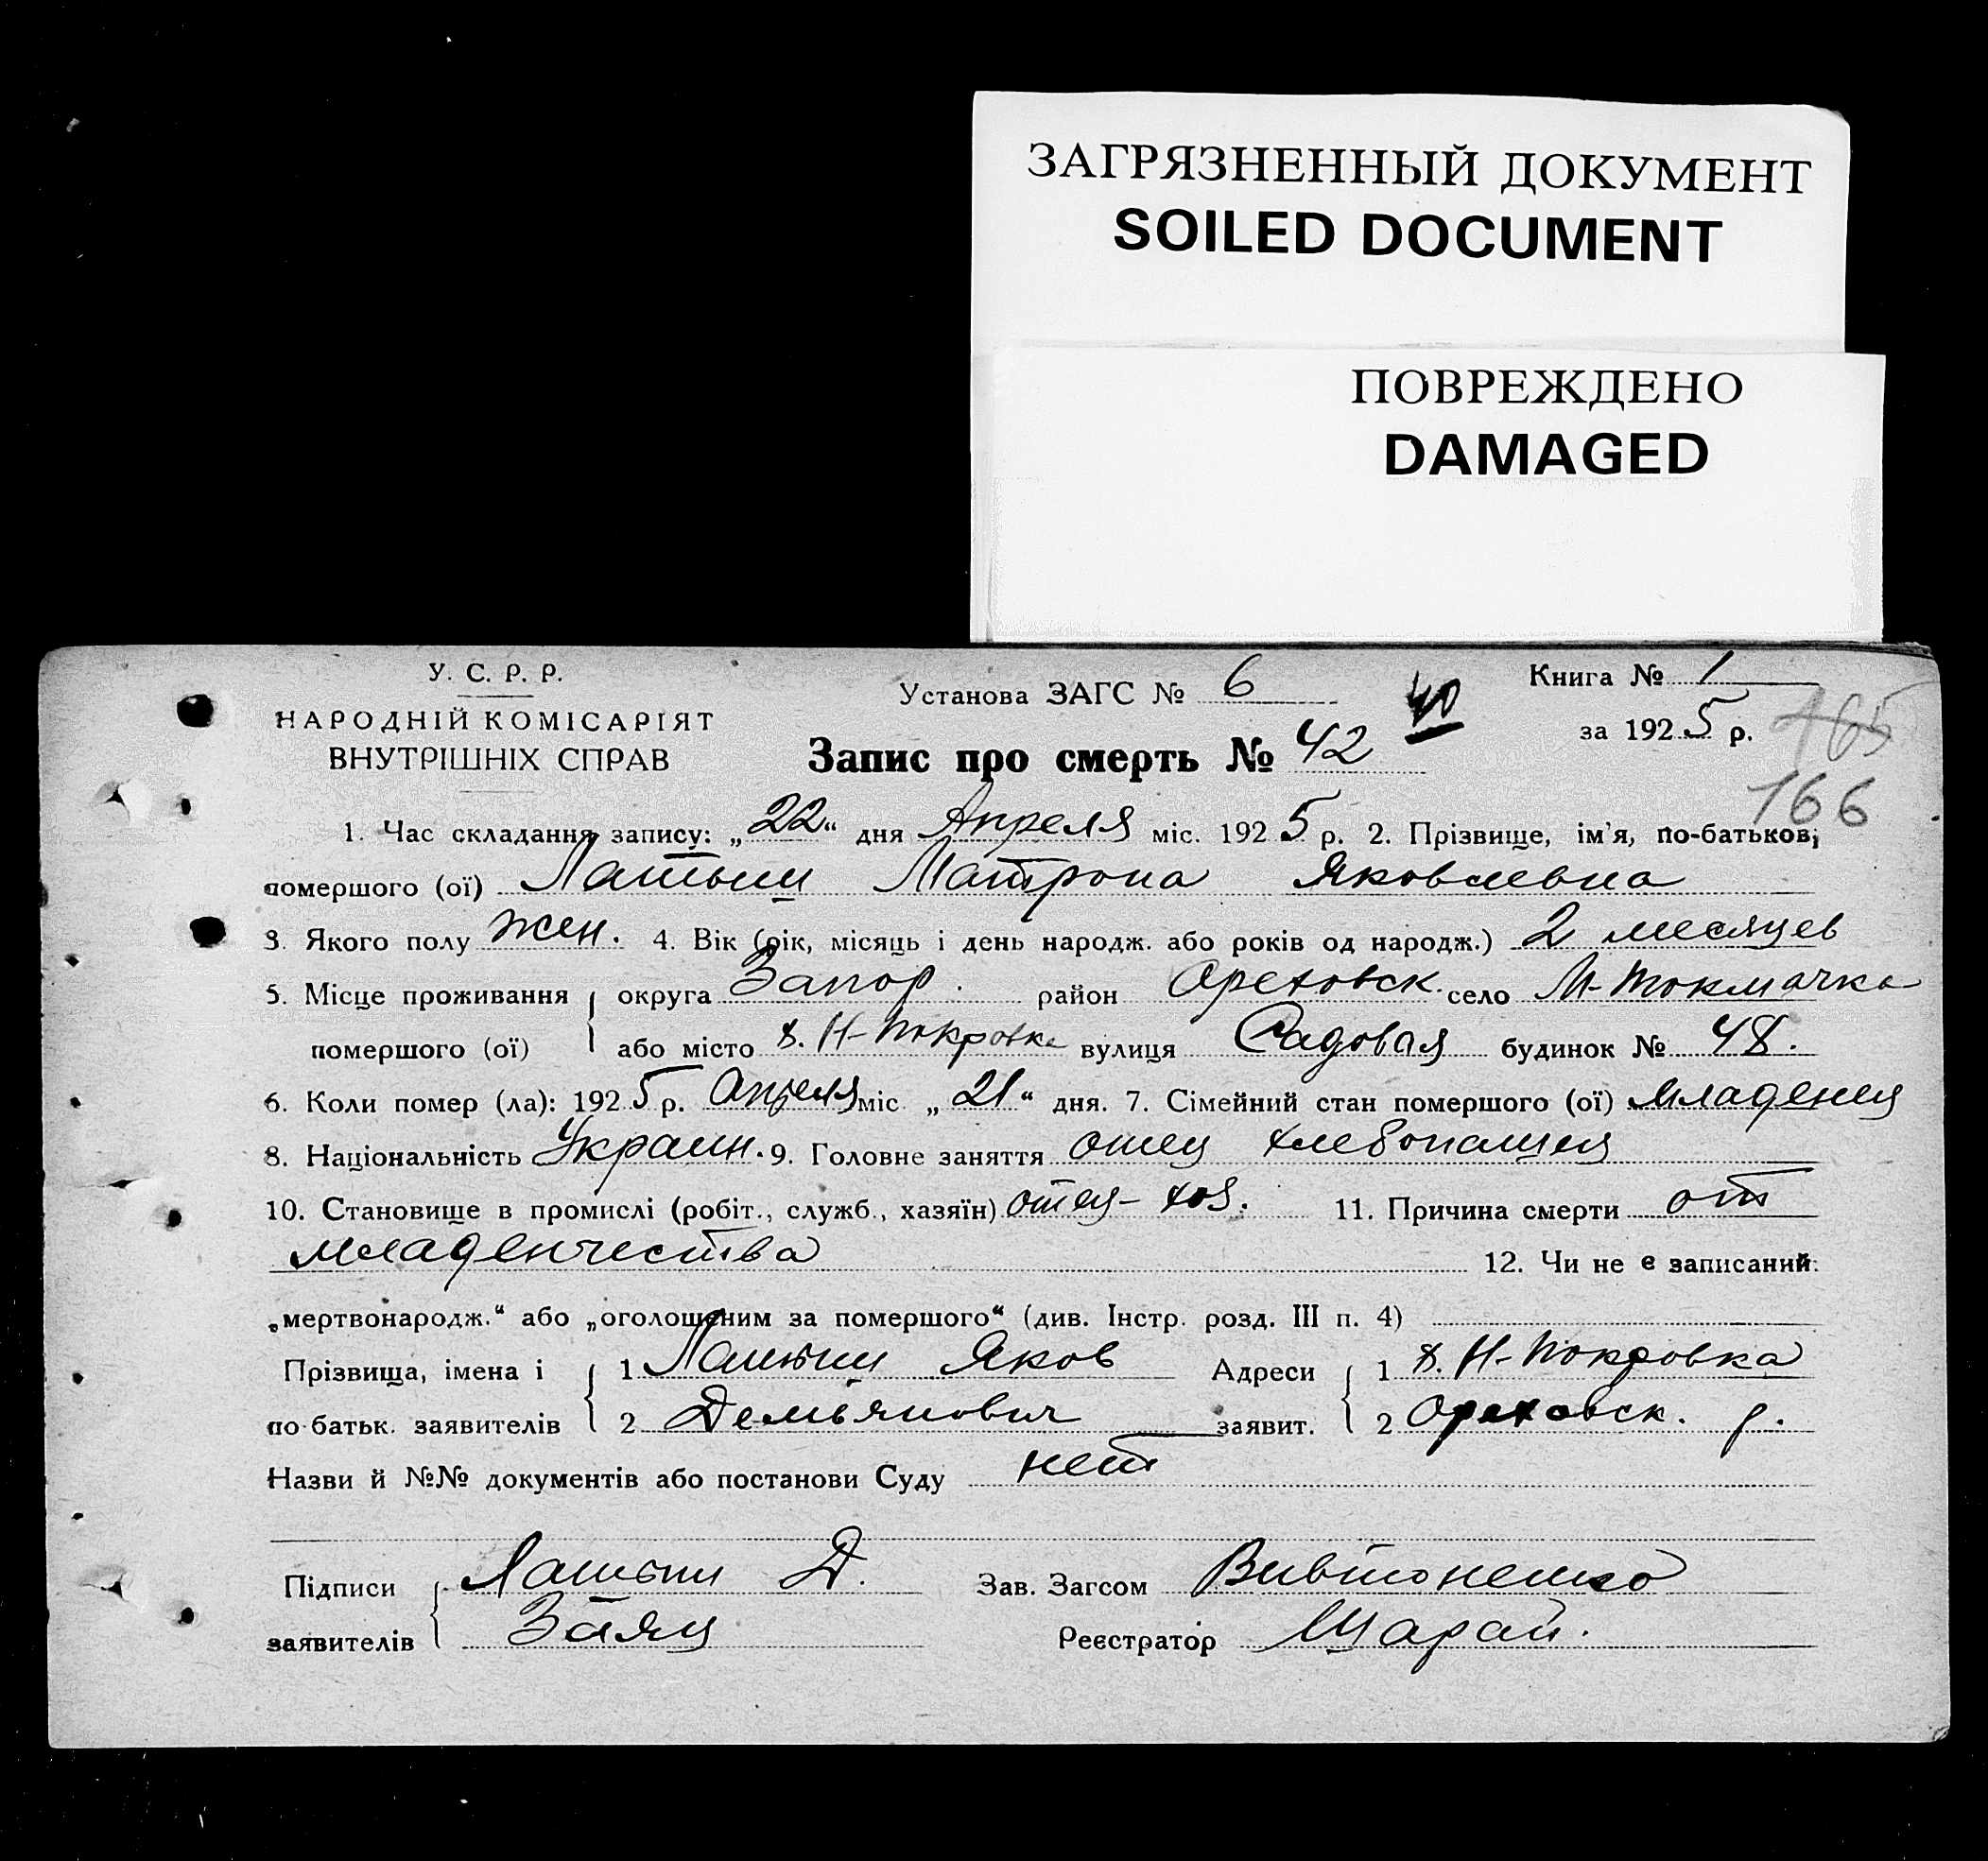 ЗАГРЯЗНЕННЫЙ ДОКУМЕНТ
SOILED DOCUMENT
ПОВРЕЖДЕНО
DAMAGED
У. С. Р. Р.
НАРОДНІЙ КОМІСАРІЯТ
ВНУТРІШНІХ СПРАВ
Установа ЗАГС № 6
40
Книга № 1
за 1925 р.
165
166
Запис про смерть № 42
1. Час складання запису: „22“ дня Апреля міс. 1925 р. 2. Прізвище, ім'я, по-батьков,
помершого (ої) Матрона Яковлевна
3. Якого полу жен. 4. Вік (рік, місяць і день народж. або років од народж.) 2 месяцев
5. Місце проживання округа Запор. район Ореховск. село М-Токмачка
помершого (ої) або місто х. Н-Покровка вулиця Садовая будинок № 48.
6. Коли помер (ла): 1925 р. Апреля міс. „21“ дня. 7. Сімейний стан помершого (ої) младенец
8. Національність Украин. 9. Головне заняття отец хлебопашец
10. Становище в промислі (робіт., служб., хазяїн) отец - хоз. 11. Причина смерти от
младенчества 12. Чи не є записаний
„мертвонародж.“ або „оголошеним за помершого“ (див. Інстр. розд. III п. 4)
Прізвища, імена і 1 Яков Адреси 1 х. Н-Покровка
по-батьк. заявителів 2 Демьянович заявит. 2 Ореховск. р.
Назви й №№ документів або постанови Суду нет
Підписи Д. Зав. Загсом
заявителів Заяц Реєстратор Шарай.